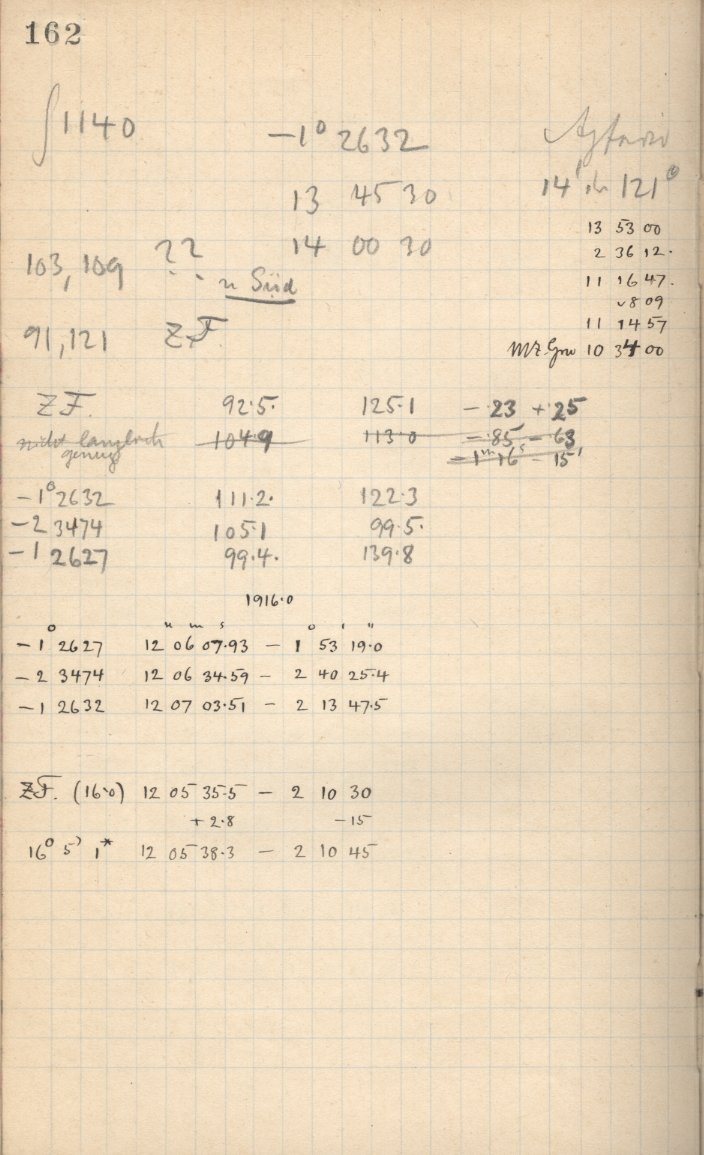 162
∫1140 −1° 2632
13 45 30
14 00 30
14' 121°
13 53 00
2 36 12.
11 16 47.
8 09
11 14 57
MZ Grw 10 34 00
103, 109 ?? n Süd
91, 121 ZF.
ZF. 92.5. 125.1 − .23 + .25
nicht lang
genug 104.9 113.0 − .85 − .63
− 1ᵐ 16ˢ − 15'
−1° 2632 111.2. 122.3
−2 3474 105.1 99.5.
−1 2627 99.4. 139.8
1916.0
−1° 2627 12 06 07.93 − 1° 53' 19.0"
−2 3474 12 06 34.59 − 2 40 25.4
−1 2632 12 07 03.51 − 2 13 47.5
ZF. (16.0) 12 05 35.5 − 2 10 30
+ 2.8 −15
16° 5' 1* 12 05 38.3 − 2 10 45